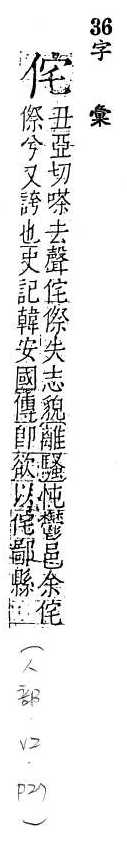 36字彙
侘
丑亞切嗏去聲侘傺失志貌離騷忳鬱邑余侘
傺兮又誇也吏記韓安國傳卽欲以侘鄙縣
(人部.V2.P27)